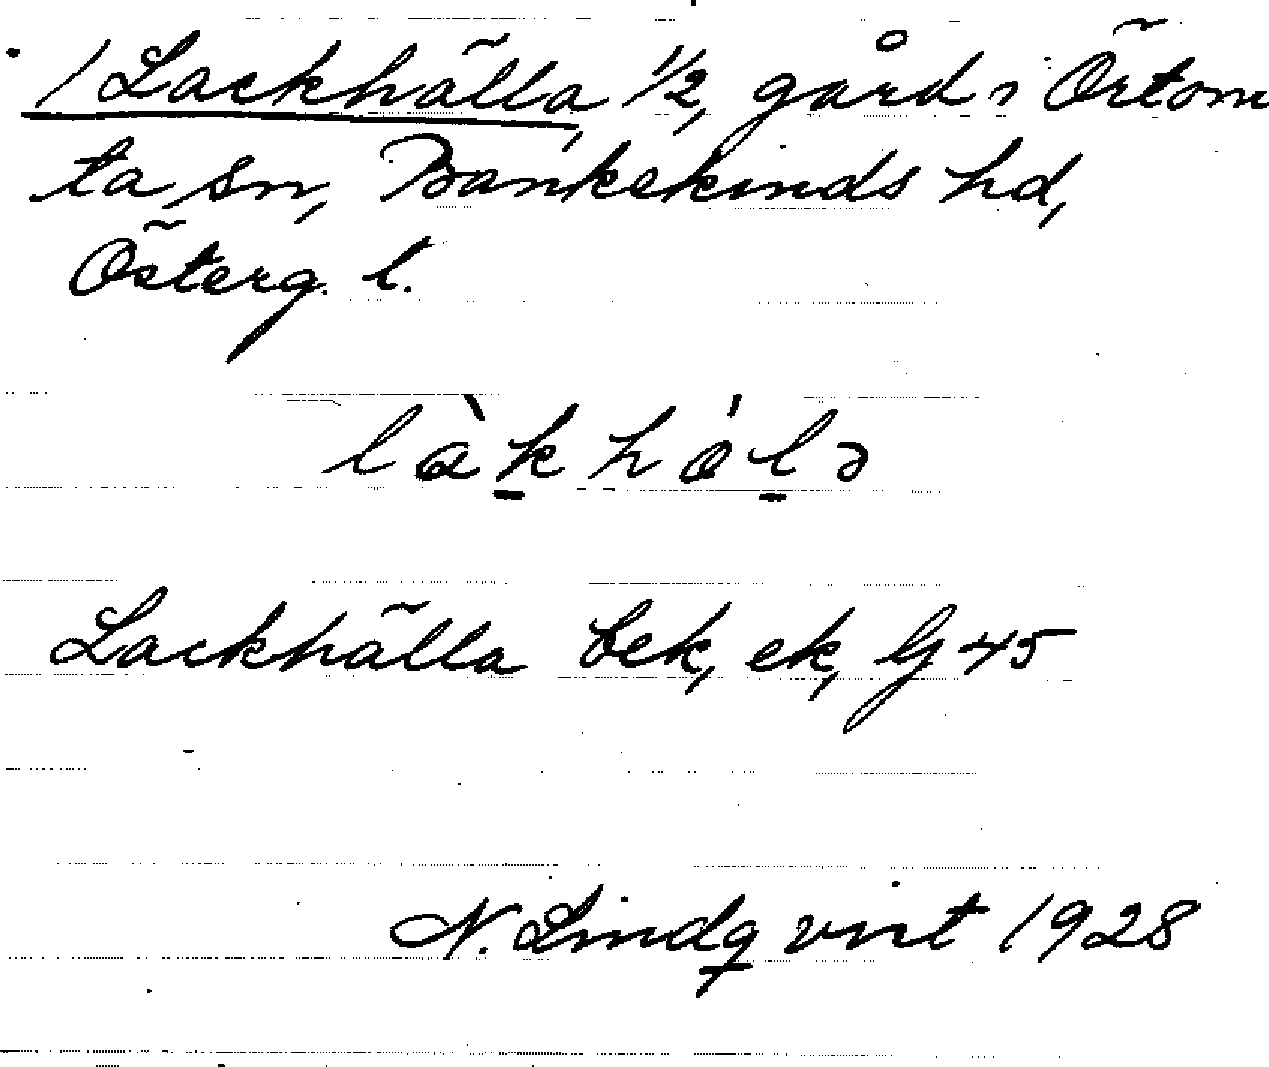 / Lackhälla, 1/2, gård i Örtom
ta sn, Bankekinds hd,
Österg. l.
làkhólə
Lackhälla bek, ek, G 45
N. Lindqvist 1928